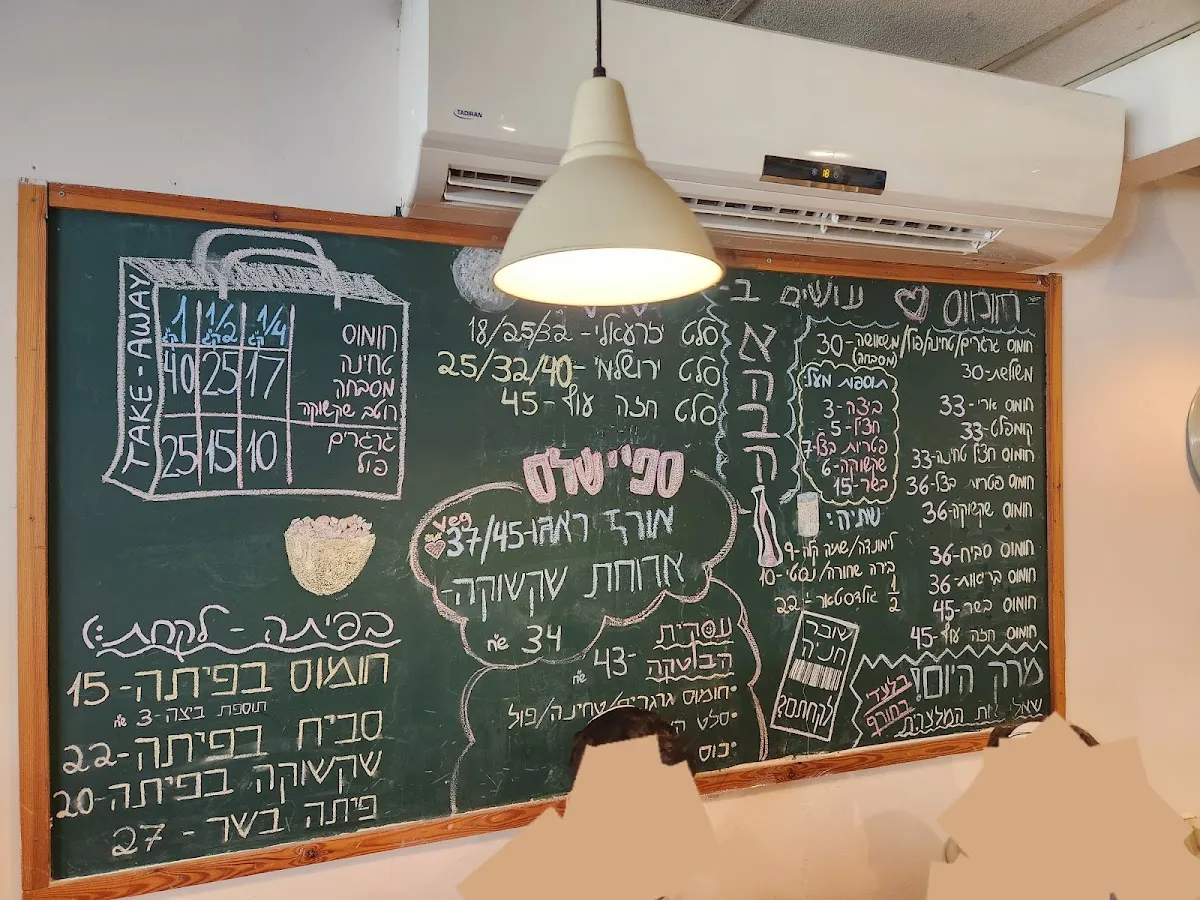 TADIRAN
18
חומוס ♥ עושים ב-
אהבה
חומוס גרגרים/טחינה/פול/משוושה-30
(מסבחה)
משולשת-30
חומוס ארי-33
קומפלט-33
חומוס חציל טחינה-33
חומוס פטריות בצל-36
חומוס שקשוקה-36
חומוס סביח-36
חומוס בראות-36
חומוס בשר-45
חומוס חזה עוף-45
תוספת מעל:
ביצה-3
חציל-5
פטריות בצל-7
שקשוקה-6
בשר-15
שתיה:
לימונדה/שתיה קלה-9
בירה שחורה/נסטי-10
1/2 גולדסטאר-22
שובר
חניה
לקחתם?
מרק היום!
בלעדי
בחורף
שאלי את המלצרית
סלט יזרעאלי-18/25/32
סלט ירושלמי-25/32/40
סלט חזה עוף-45
ספיישלס
veg
אורז ראגו-37/45
ארוחת שקשוקה-
34 ש"ח
עסקית
הבולטקה
43- ש"ח
•חומוס גרגרים/טחינה/פול
•סלט
•כוס
TAKE-AWAY
1/4 ק"ג 1/2 ק"ג 1 ק"ג
חומוס
טחינה
מסבחה
רוטב שקשוקה
17 25 40
גרגרים
פול
10 15 25
בפיתה - לקחת:)
חומוס בפיתה-15
תוספת ביצה-3 ש"ח
סביח בפיתה-22
שקשוקה בפיתה-20
פיתה בשר - 27